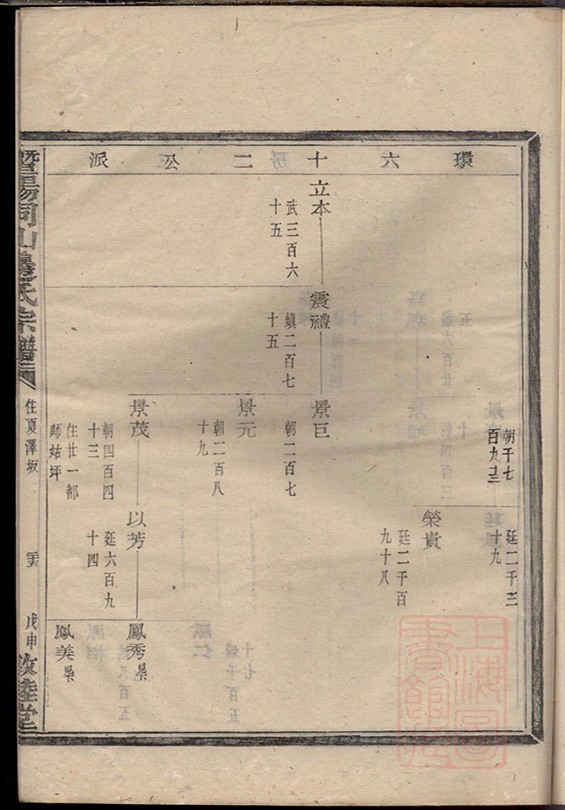 環六十二公派
朝千七
百九十三
廷二千三
十九
榮貴
廷二千百
九十八
立本
武三百六
十五
震禮
鎮二百七
十五
景巨
朝二百七
景元
朝二百八
十九
景茂
朝四百四
十三
住廿一都
師姑坪
以芳
廷六百九
十四
鳳秀
鳳美
暨陽同山邊氏宗譜
住夏澤坂
戊申敦睦堂
上海圖書館藏